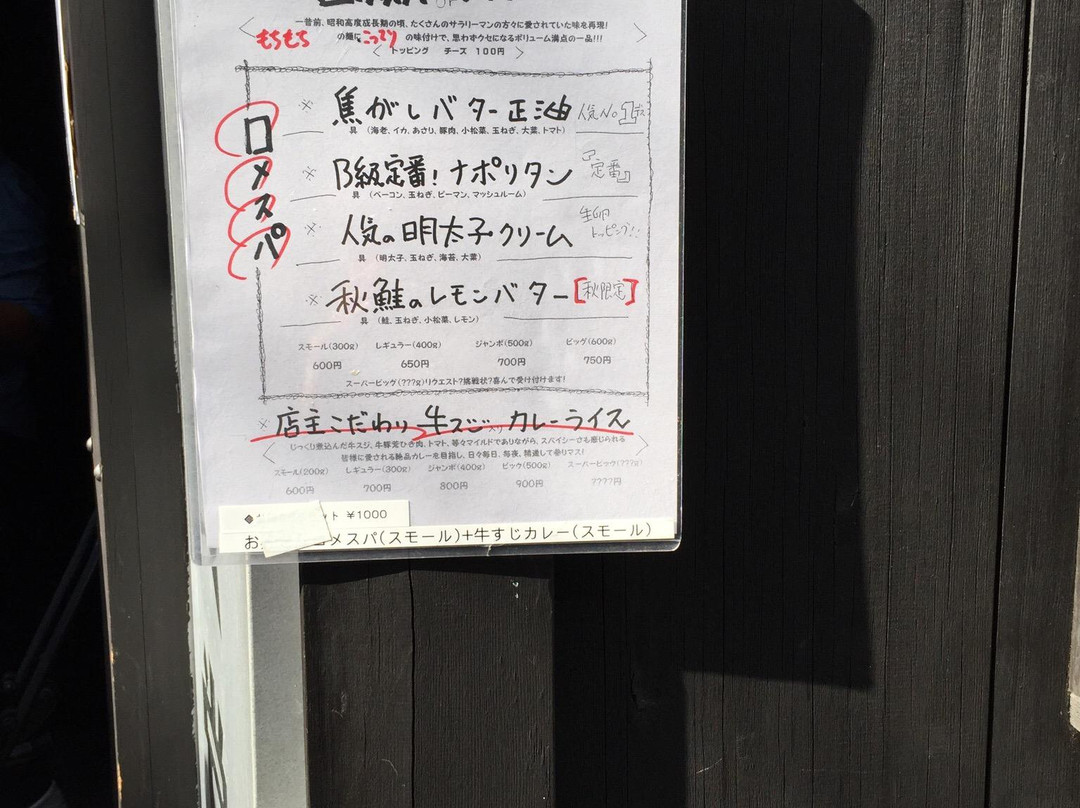 一昔前、昭和高度成長期の頃、たくさんのサラリーマンの方々に愛されていた味を再現!
もちもちの麺にこってりの味付けで、思わずクセになるボリューム満点の一品!!!
トッピング チーズ 100円
ロメスパ
※ 焦がしバター正油 人気No1
具 (海老、イカ、あさり、豚肉、小松菜、玉ねぎ、大葉、トマト)
※ B級定番!ナポリタン 『定番』
具 (ベーコン、玉ねぎ、ピーマン、マッシュルーム)
※ 人気の明太子クリーム 生卵トッピング!!
具 (明太子、玉ねぎ、海苔、大葉)
※ 秋鮭のレモンバター [秋限定]
具 (鮭、玉ねぎ、小松菜、レモン)
スモール(300g) レギュラー(400g) ジャンボ(500g) ビッグ(600g)
600円 650円 700円 750円
スーパービッグ(???g)リクエスト?挑戦状?喜んで受け付けます!
※ 店主こだわり牛スジ入りカレーライス
じっくり煮込んだ牛スジ、牛豚荒びき肉、トマト、等々マイルドでありながら、スパイシーさも感じられる
皆様に愛される絶品カレーを目指し、日々毎日、毎夜、精進して参りマス!
スモール(200g) レギュラー(300g) ジャンボ(400g) ビック(500g) スーパービック(???g)
600円 700円 800円 900円 ????円
ット ¥1000
メスパ(スモール)+牛すじカレー(スモール)